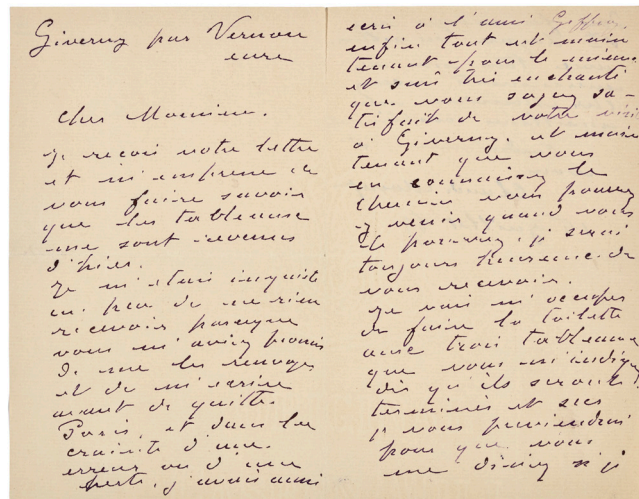 Giverny par Vernon
eure
Cher Monsieur.
Je reçois votre lettre
et m'empresse de
vous faire savoir
que les tableaux
me sont revenus
d'hier.
Je m'étais inquiété
un peu de ne rien
recevoir parceque
vous m'aviez promis
de me les renvoyer
et de m'écrire
avant de quitter
Paris, et dans la
crainte d'une
erreur ou d'une
perte, j'avais aussi
écris à l'ami Geffroy,
enfin tout est main
tenant pour le mieux
et suis très enchanté
que vous soyez sa-
tisfait de votre visite
à Giverny. et main
tenant que vous
en connaissez le
chemin vous pourrez
y venir quand vous
le pourrez. je serai
toujours heureux de
vous recevoir.
Je vais m'occuper
de faire la toilette
aux trois tableaux
que vous m'indiquez
dès qu'ils seront
terminés et secs
je vous préviendrai
pour que vous
me disiez si je